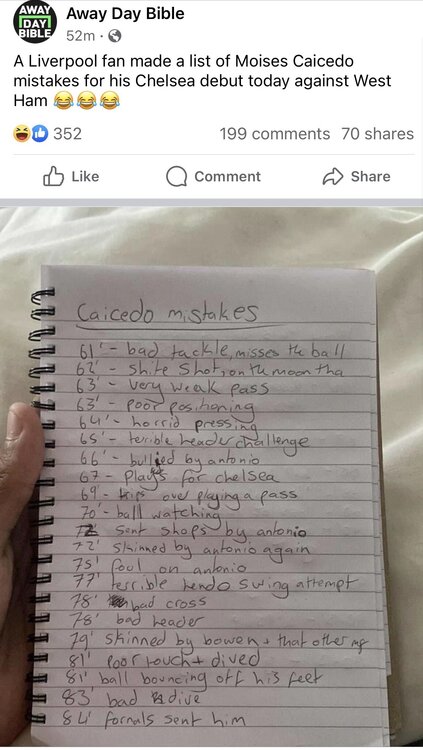 AWAY
DAY
BIBLE
Away Day Bible
52m ·
A Liverpool fan made a list of Moises Caicedo
mistakes for his Chelsea debut today against West
Ham 😂😂😂
352
199 comments 70 shares
Like Comment Share
Caicedo mistakes
61' - bad tackle, misses the ball
62' - shite shot, on the moon tha
63' - very weak pass
63' - poor positioning
64' - horrid pressing
65' - terrible header challenge
66' - bullied by antonio
67 - Plays for chelsea
69' - trips over playing a pass
70' - ball watching
72' sent shops by antonio
72' skinned by antonio again
75' foul on antonio
77' terrible hendo swing attempt
78' bad cross
78' bad header
79' skinned by bowen + that other mf
81' Poor touch + dived
81' ball bouncing off his feet
83' bad dive
84' fornals sent him